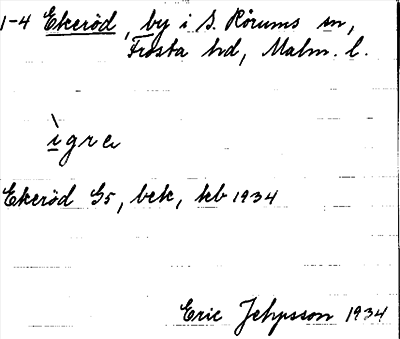 1-4 Ekeröd, by i S. Rörums sn,
Frosta hd, Malm. l.
ìgre
Ekeröd G5, bek, kb 1934
Eric Jepsson 1934